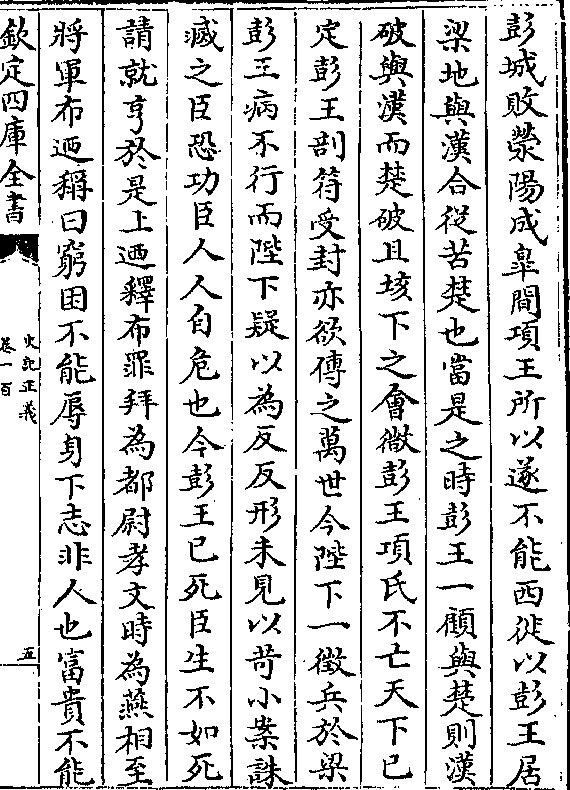 彭城敗滎陽成臯間項王所以遂不能西徙以彭王居
梁地與漢合從苦楚也當是之時彭王一顧與楚則漢
破與漢而楚破且垓下之會微彭王項氏不亡天下已
定彭王剖符受封亦欲傳之萬世今陛下一徵兵於梁
彭王病不行而陛下疑以為反反形未見以苛小案誅
滅之臣恐功臣人人自危也今彭王已死臣生不如死
請就亨於是上迺釋布罪拜為都尉孝文時為燕相至
將軍布迺稱曰窮困不能辱身下志非人也富貴不能
欽定四庫全書
史記正義
卷一百
五